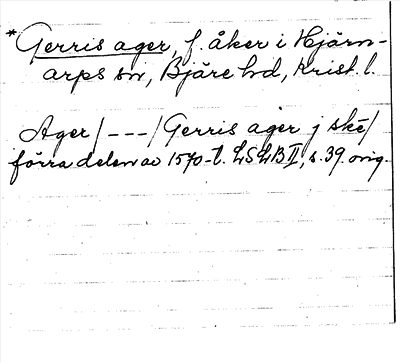 *Gerris ager, f. åker i Hjärn-
arps sn, Bjäre hd, Krist. l.
Ager/---/Gerris ager j skē/
förra delen av 1570-t. LSLB II, s. 39 orig.